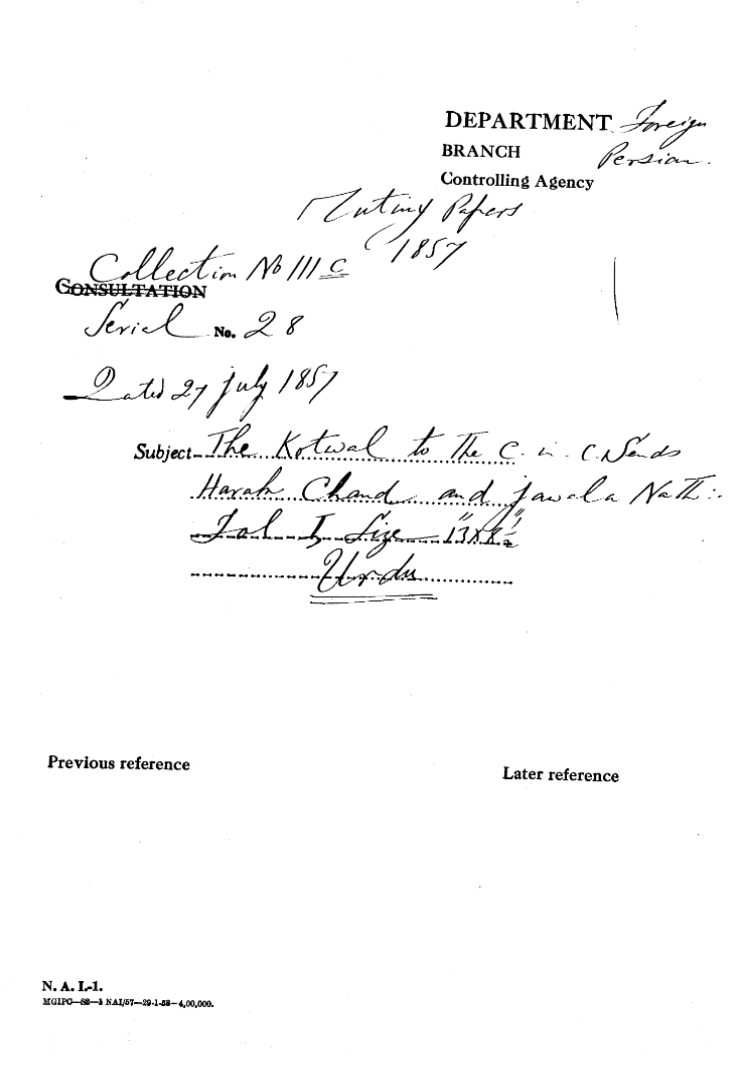 DEPARTMENT Foreign
BRANCH Persian.
Controlling Agency
Mutiny Papers
1857
Collection No III C
CONSULTATION
Serial No. 28
Dated 27 July 1857
Subject The Kotwal to The C. in. C. Sends
Harak Chand and Jawala Nath:.
Fol I, Size 13"x8½"
Urdu
Previous reference
Later reference
N. A. I.-1.
MGIPC—S2—1 NAI/57—29-1-58—4,00,000.